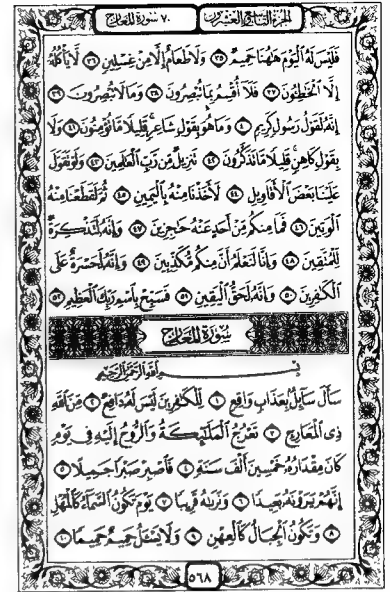 الجزء التاسع والعشرون ٧٠ سورة المعارج
فَلَيْسَ لَهُ ٱلْيَوْمَ هَٰهُنَا حَمِيمٌ ٣٥ وَلَا طَعَامٌ إِلَّا مِنْ غِسْلِينٍ ٣٦ لَّا يَأْكُلُهُۥٓ
إِلَّا ٱلْخَٰطِـُٔونَ ٣٧ فَلَآ أُقْسِمُ بِمَا تُبْصِرُونَ ٣٨ وَمَا لَا تُبْصِرُونَ ٣٩
إِنَّهُۥ لَقَوْلُ رَسُولٍ كَرِيمٍ ٤٠ وَمَا هُوَ بِقَوْلِ شَاعِرٍ ۚ قَلِيلًا مَّا تُؤْمِنُونَ ٤١ وَلَا
بِقَوْلِ كَاهِنٍ ۚ قَلِيلًا مَّا تَذَكَّرُونَ ٤٢ تَنزِيلٌ مِّن رَّبِّ ٱلْعَٰلَمِينَ ٤٣ وَلَوْ تَقَوَّلَ
عَلَيْنَا بَعْضَ ٱلْأَقَاوِيلِ ٤٤ لَأَخَذْنَا مِنْهُ بِٱلْيَمِينِ ٤٥ ثُمَّ لَقَطَعْنَا مِنْهُ
ٱلْوَتِينَ ٤٦ فَمَا مِنكُم مِّنْ أَحَدٍ عَنْهُ حَٰجِزِينَ ٤٧ وَإِنَّهُۥ لَتَذْكِرَةٌ
لِّلْمُتَّقِينَ ٤٨ وَإِنَّا لَنَعْلَمُ أَنَّ مِنكُم مُّكَذِّبِينَ ٤٩ وَإِنَّهُۥ لَحَسْرَةٌ عَلَى
ٱلْكَٰفِرِينَ ٥٠ وَإِنَّهُۥ لَحَقُّ ٱلْيَقِينِ ٥١ فَسَبِّحْ بِٱسْمِ رَبِّكَ ٱلْعَظِيمِ ٥٢
سورة المعارج
بِسْمِ ٱللَّهِ ٱلرَّحْمَٰنِ ٱلرَّحِيمِ
سَأَلَ سَآئِلٌۢ بِعَذَابٍ وَاقِعٍ ١ لِّلْكَٰفِرِينَ لَيْسَ لَهُۥ دَافِعٌ ٢ مِّنَ ٱللَّهِ
ذِى ٱلْمَعَارِجِ ٣ تَعْرُجُ ٱلْمَلَٰٓئِكَةُ وَٱلرُّوحُ إِلَيْهِ فِى يَوْمٍ
كَانَ مِقْدَارُهُۥ خَمْسِينَ أَلْفَ سَنَةٍ ٤ فَٱصْبِرْ صَبْرًا جَمِيلًا ٥
إِنَّهُمْ يَرَوْنَهُۥ بَعِيدًا ٦ وَنَرَىٰهُ قَرِيبًا ٧ يَوْمَ تَكُونُ ٱلسَّمَآءُ كَٱلْمُهْلِ
٨ وَتَكُونُ ٱلْجِبَالُ كَٱلْعِهْنِ ٩ وَلَا يَسْـَٔلُ حَمِيمٌ حَمِيمًا ١٠
٥٦٨